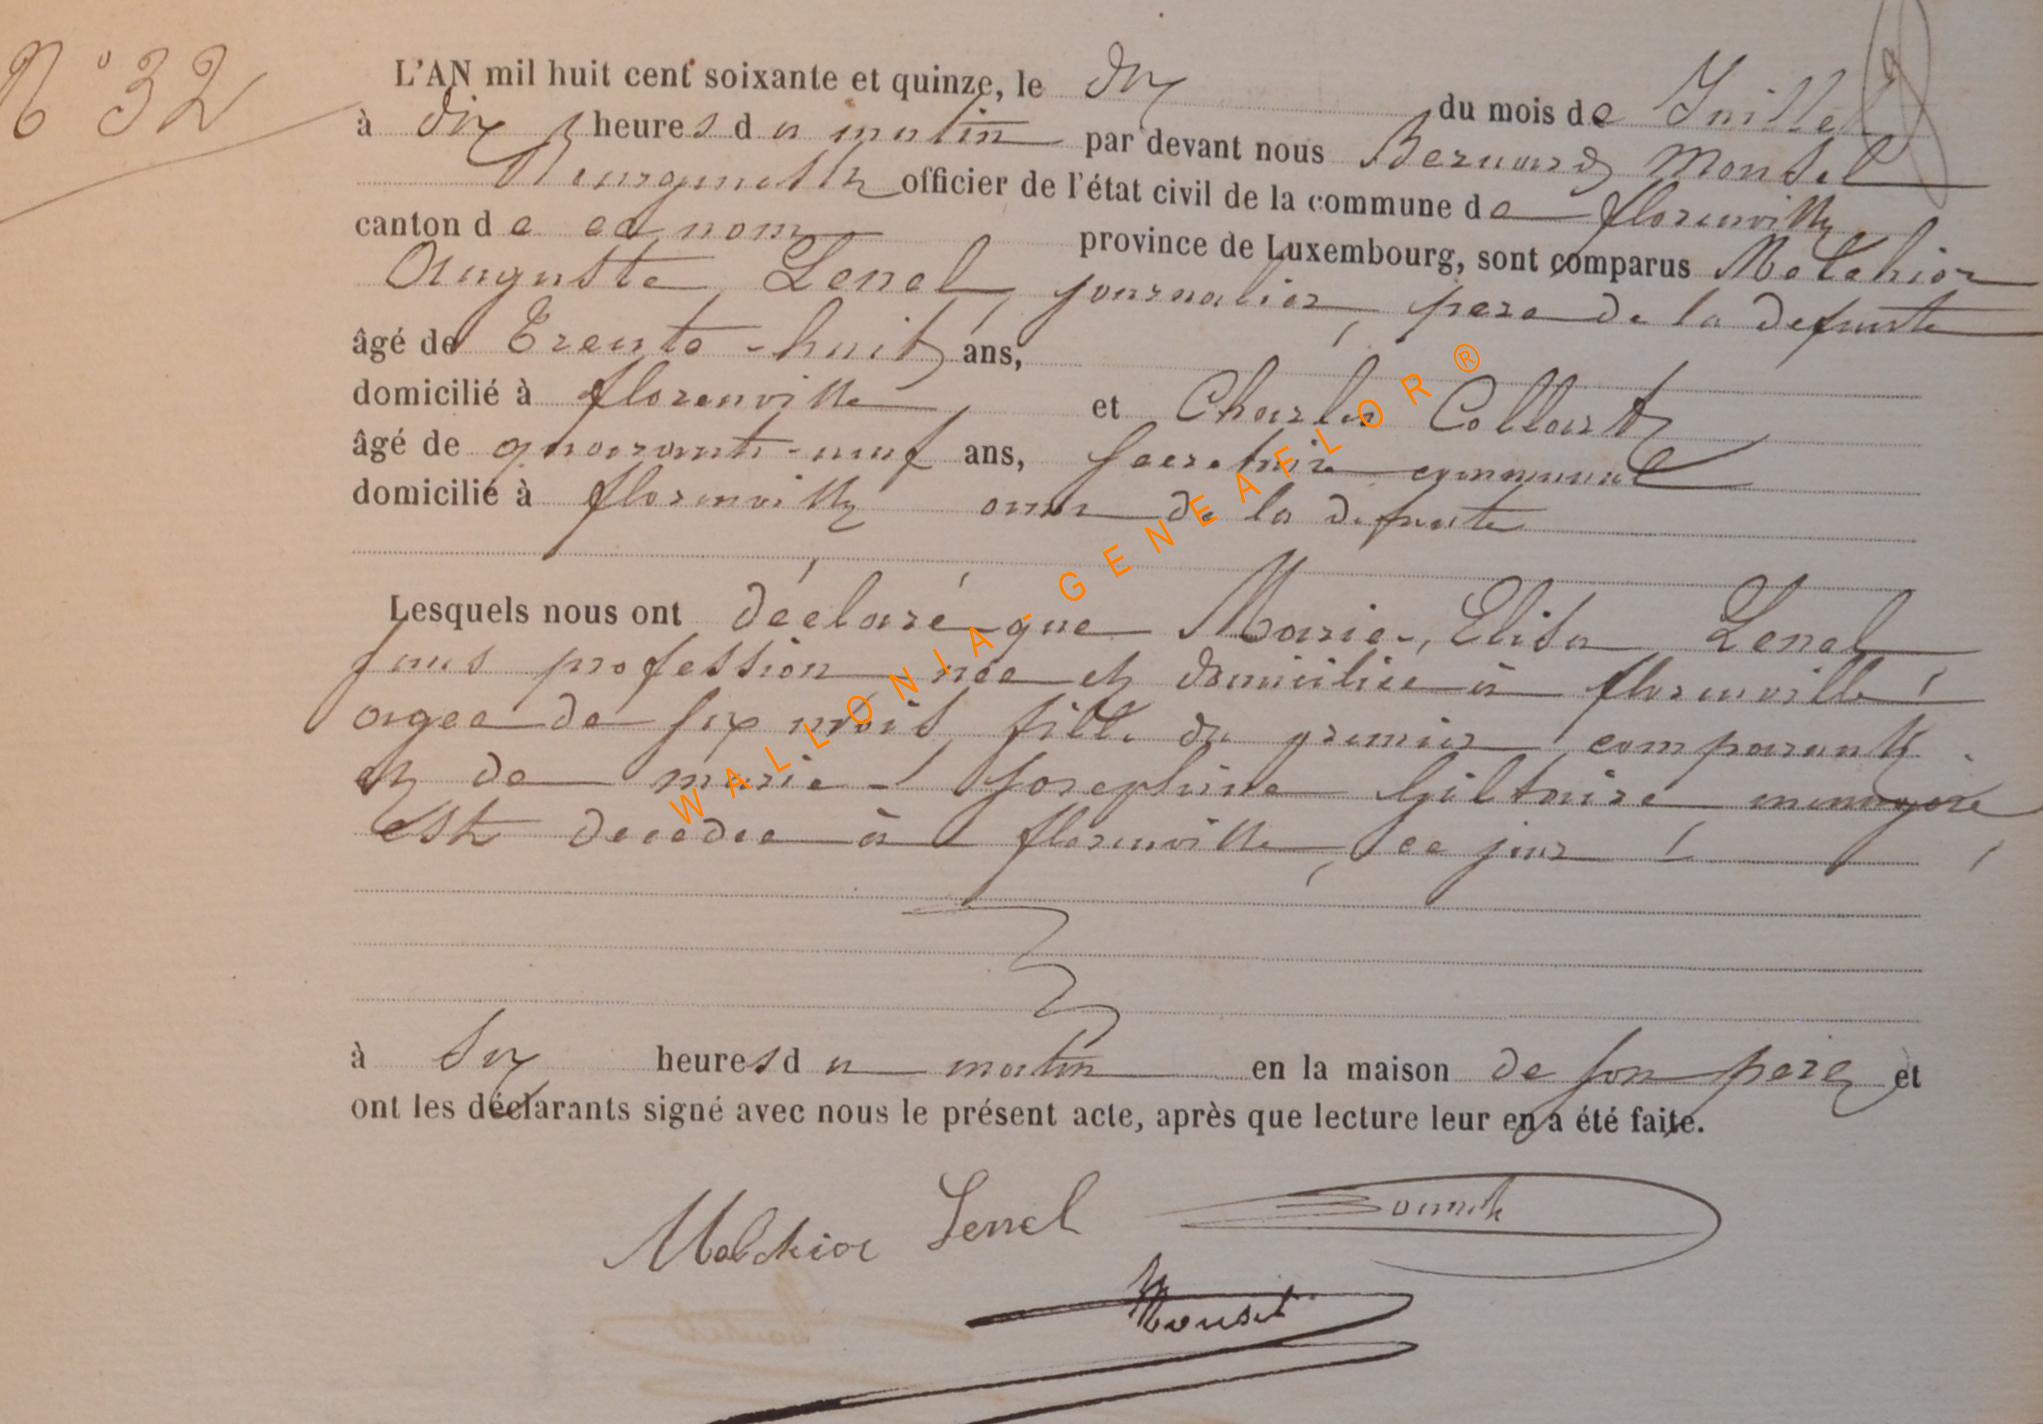 N° 32
L'AN mil huit cent soixante et quinze, le dix du mois de Juillet
à dix heures du matin par devant nous Bernard Monsel
Bourgmestre officier de l'état civil de la commune de florenville
canton de ce nom province de Luxembourg, sont comparus Melchior
Auguste Lenel, journalier, pere de la defunte
âgé de Trente-huit ans,
domicilié à florenville, et Charles Collart
âgé de quarante-neuf ans, secretaire communal
domicilié à florenville de la defunte
Lesquels nous ont déclaré que Marie, Elisa Lenel
sans profession née et domiciliée à florenville
agee de six mois, fille du premier comparant
et de marie-josephine Giltaire menagere
est decedee à florenville, ce jour
à six heures du matin en la maison de son pere et
ont les déclarants signé avec nous le présent acte, après que lecture leur en a été faite.
Melchior Lenel
Monsel
WALLONIA-GENEAFLOR®